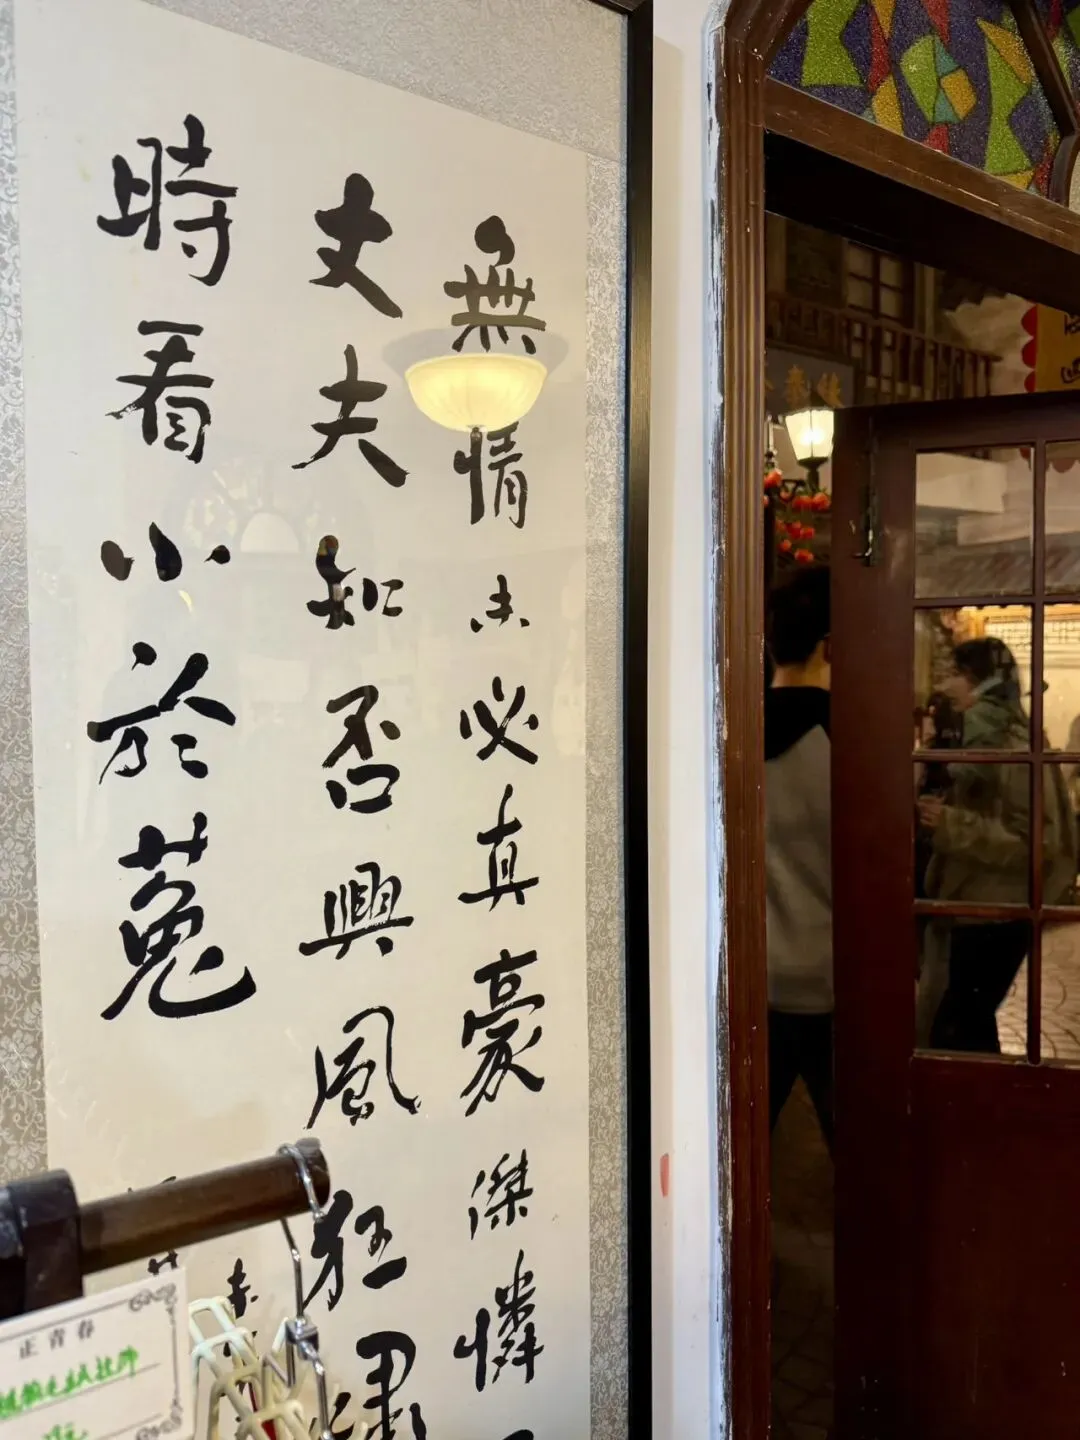 無情未必真豪傑憐
丈夫知否興風狂嘯
時看小於菟
正青春